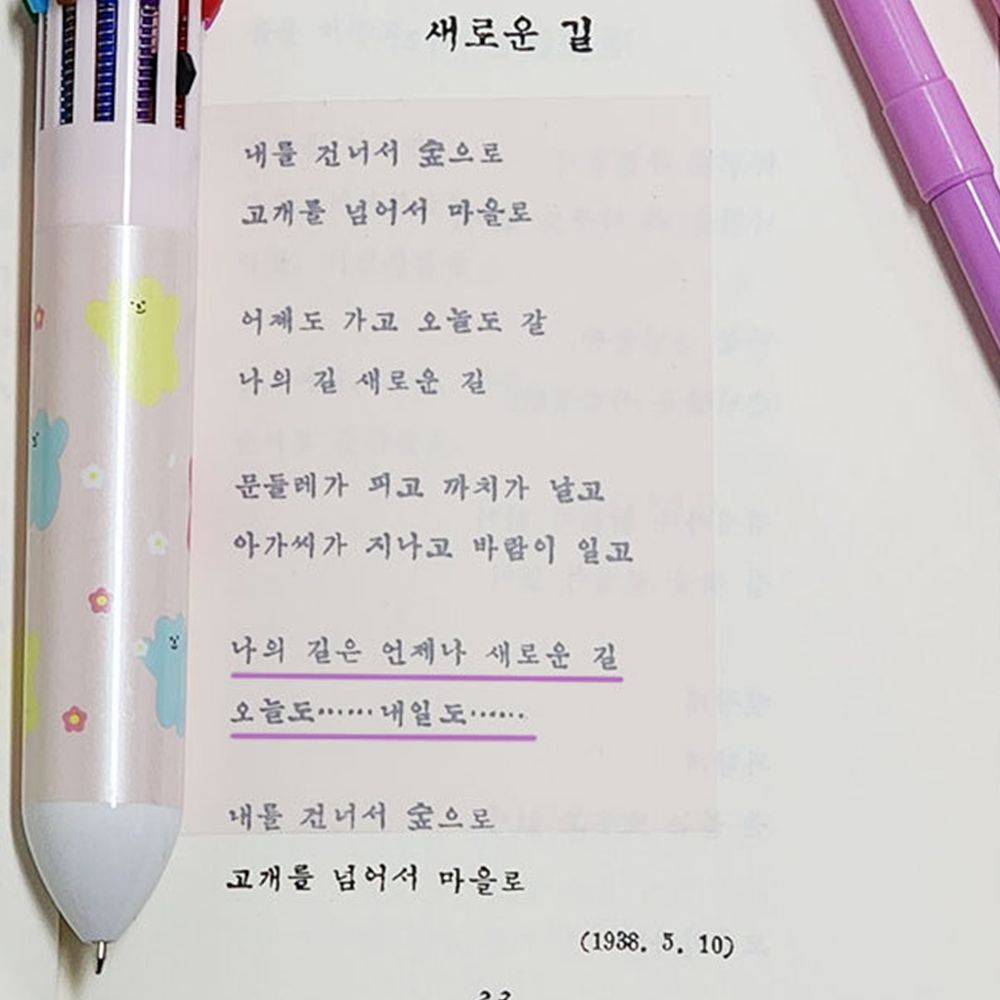 새로운 길
내를 건너서 숲으로
고개를 넘어서 마을로
어제도 가고 오늘도 갈
나의 길 새로운 길
문들레가 피고 까치가 날고
아가씨가 지나고 바람이 일고
나의 길은 언제나 새로운 길
오늘도……내일도……
내를 건너서 숲으로
고개를 넘어서 마을로
(1938. 5. 10)